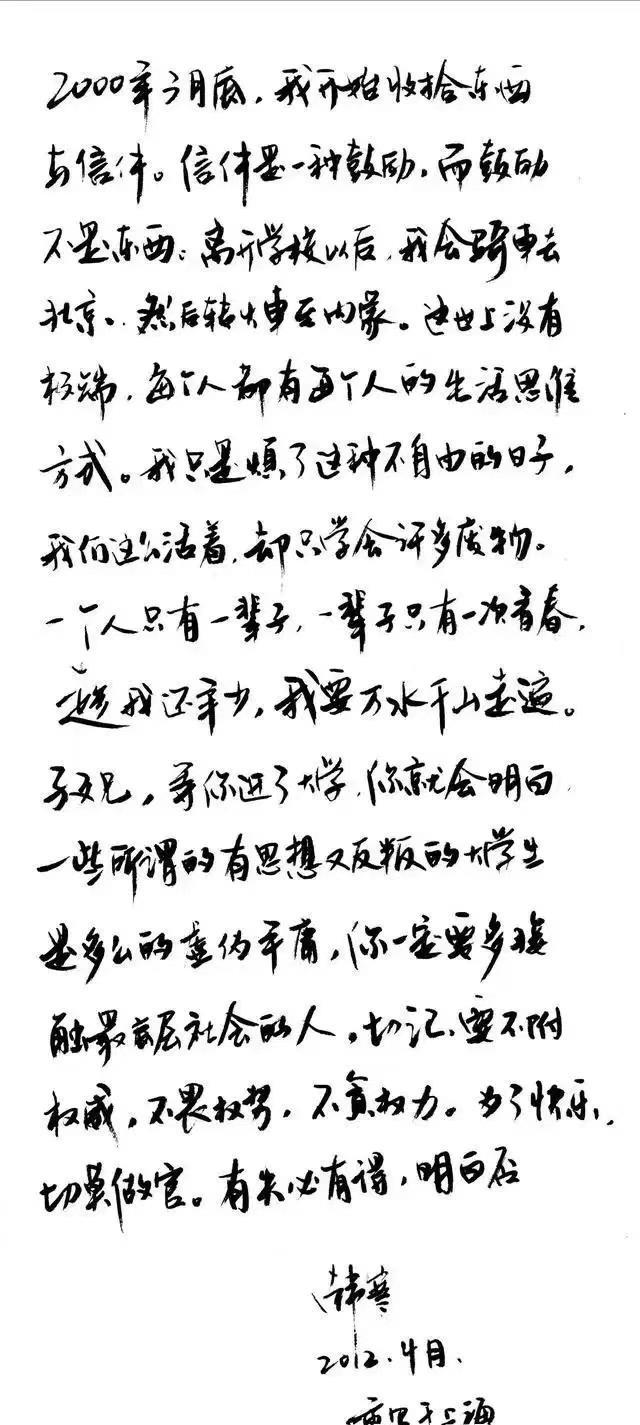 2000年3月底，我开始收拾东西
与信件。信件是一种鼓励，而鼓励
不是东西；离开学校以后，我会骑车去
北京，然后转火车至内蒙。这世上没有
极端，每个人都有每个人的生活思维
方式。我只是烦了这种不自由的日子，
我们这么活着，却只学会许多废物。
一个人只有一辈子，一辈子只有一次青春，
趁我还年少，我要万水千山走遍。
兄，等你进了大学，你就会明白，
一些所谓的有思想又反叛的大学生
是多么的虚伪平庸，你一定要多接
触最底层社会的人，切记，要不附
权威，不畏权势，不贪权力。为了快乐，
切莫做官。有失必有得，明白否
韩寒
2012.4月.
于上海